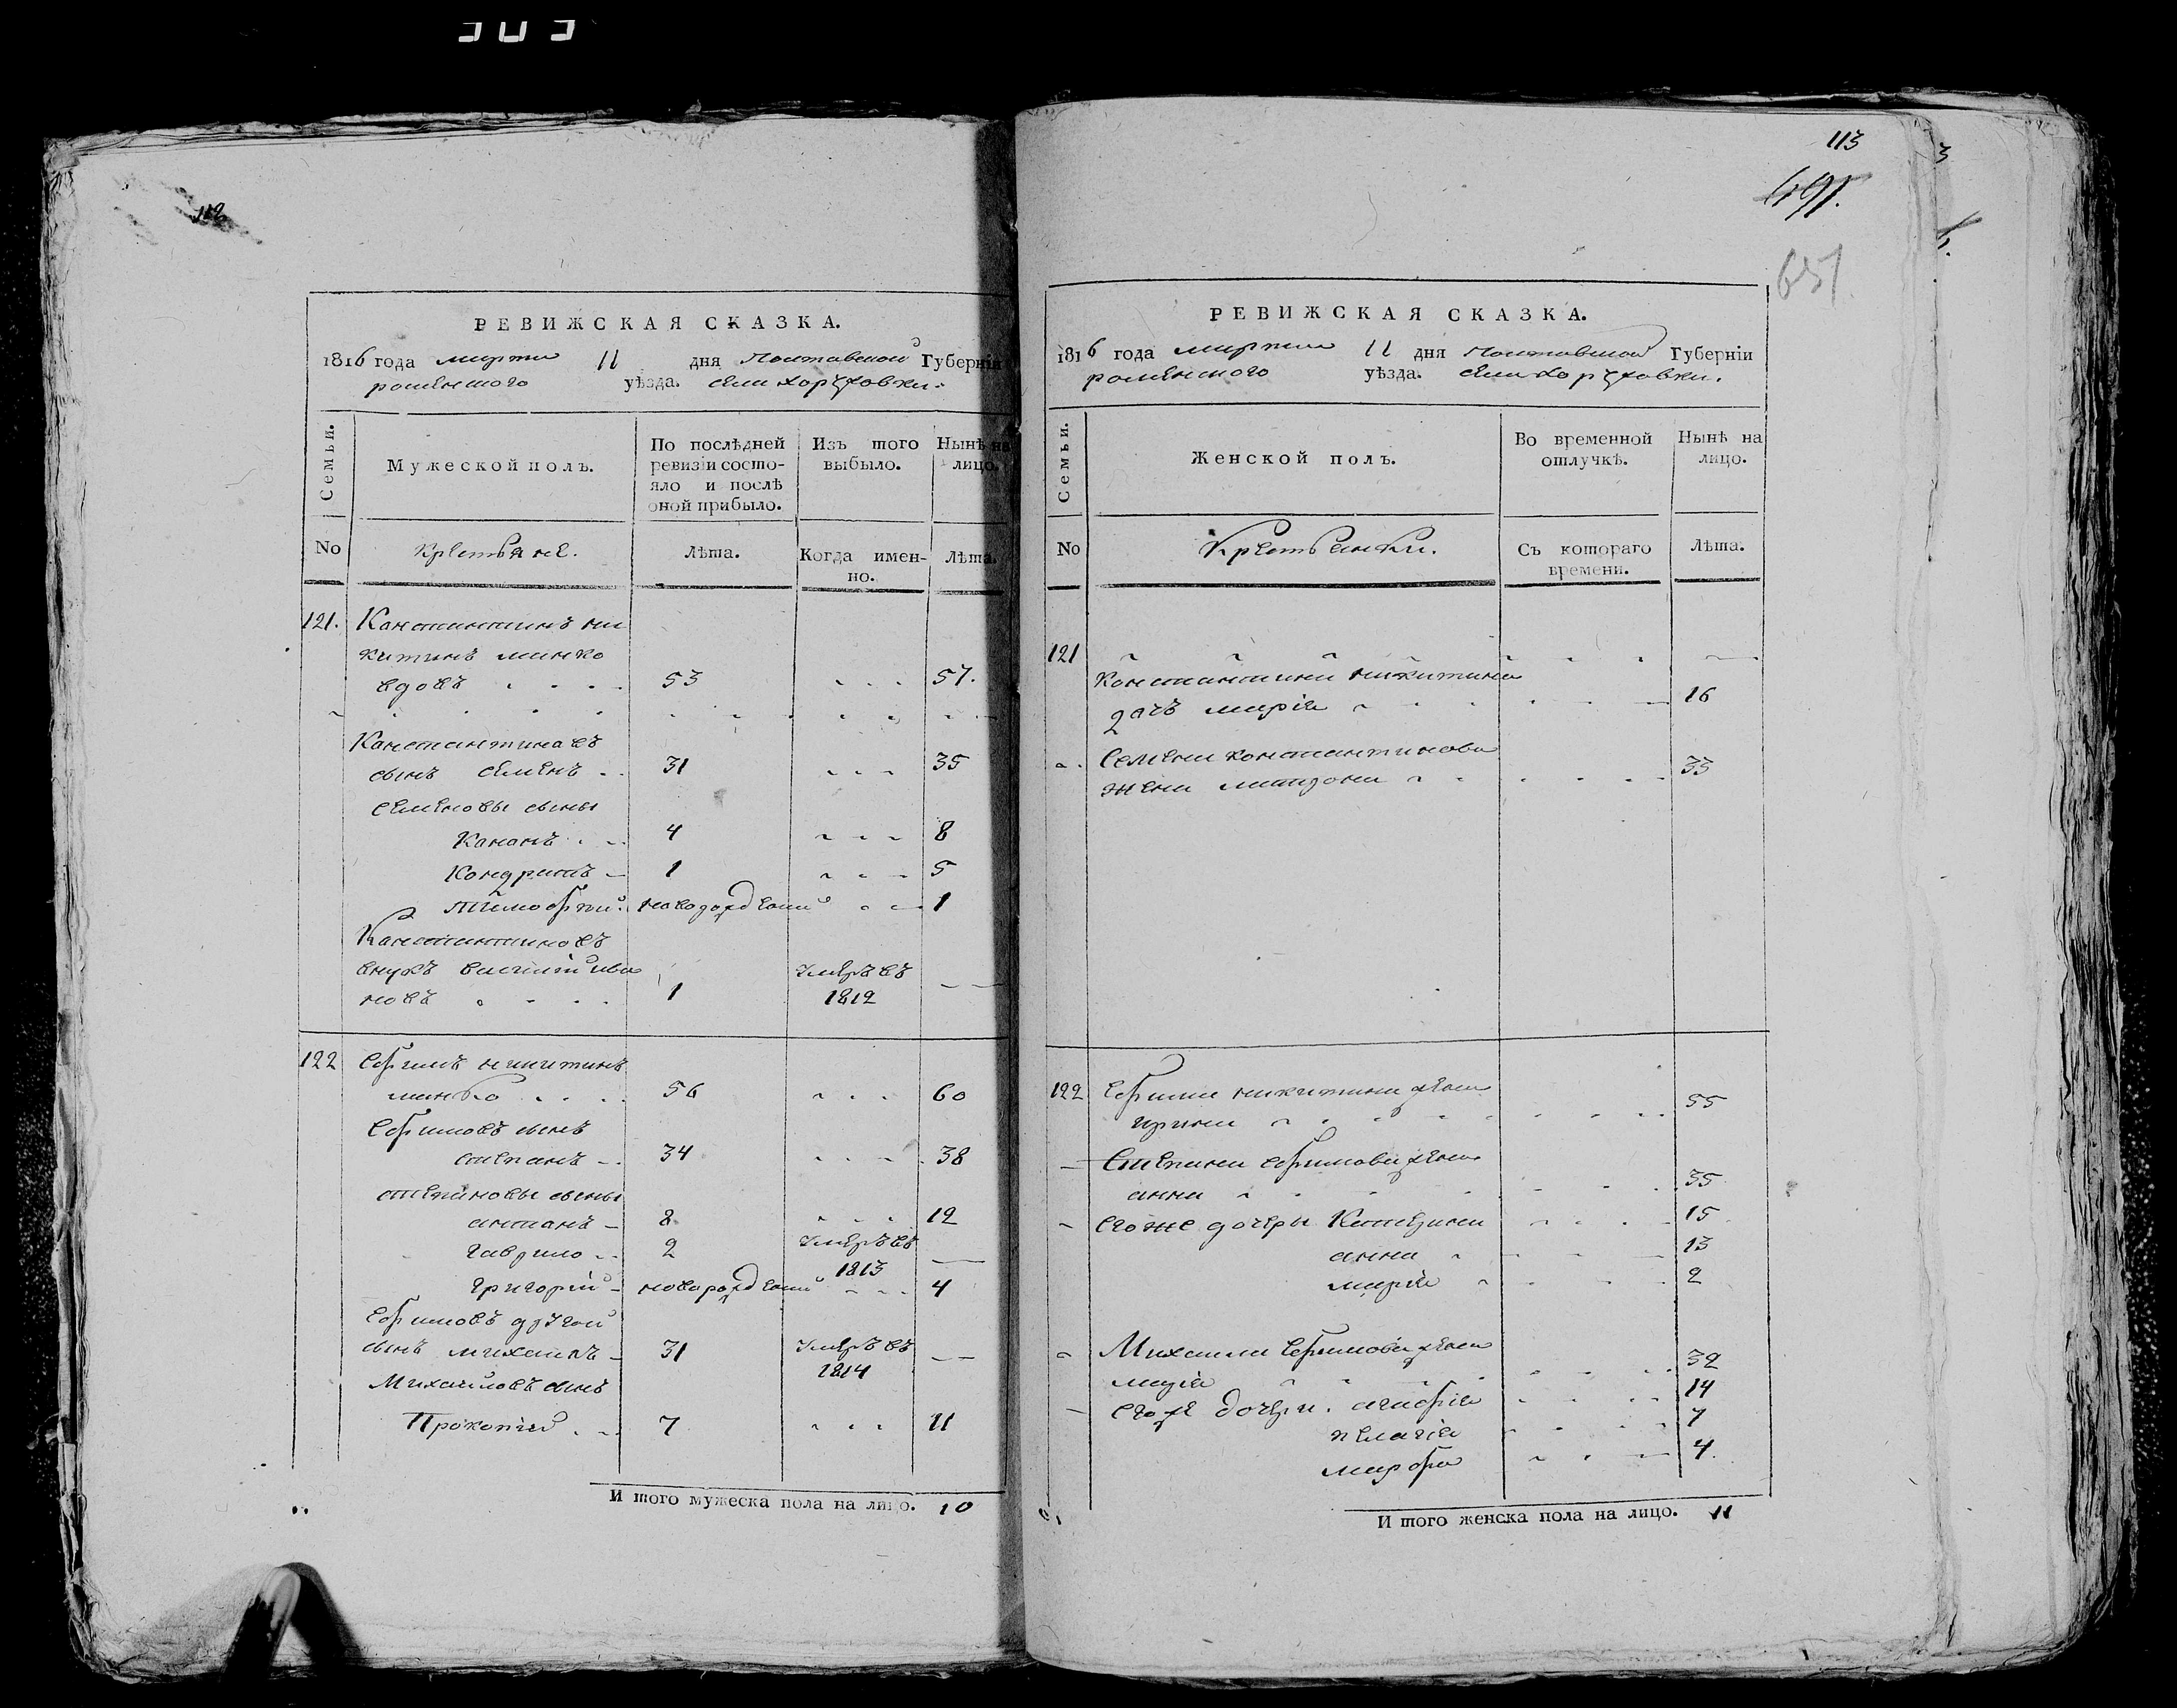 112
РЕВИЖСКАЯ СКАЗКА.
1816 года марта 11 дня Полтавской Губерніи
роменского уѣзда. села хоружовки.
Семьи.
Мужеской полъ.
По послѣдней ревизіи состо-
яло и послѣ
оной прибыло.
Изъ того
выбыло.
Нынѣ на
лицо.
No
Крестьяне.
Лѣта.
Когда имен-
но.
Лѣта.
121. Канстантинъ ни
китинъ минко
вдовъ 53 57.
Канстантиновъ
сынъ семенъ 31 35
семеновы сыны
Кананъ 4 8
Кондратъ 1 5
тимофей новорожденный 1
Канстантиновъ
внукъ василий ива
новъ 1 умеръ въ 1812
122 Ефимъ никитинъ
минко 56 60
Ефимовъ сынъ
степанъ 34 38
степановы сыны
антонъ 8 12
гаврило 2 умеръ въ 1813
григорій новорожденный 4
Ефимовъ другой
сынъ михаилъ 31 умеръ въ 1814
Михайловъ сынъ
Прокопий 7 11
И того мужеска пола на лицо. 10
113
491.
651
РЕВИЖСКАЯ СКАЗКА.
1816 года марта 11 дня Полтавской Губерніи
роменского уѣзда. села хоружовки.
Семьи.
Женской полъ.
Во временной
отлучкѣ.
Нынѣ на
лицо.
No
Крестьянки.
Съ котораго
времени.
Лѣта.
121
Констанتина никитина
дачъ марія 16
Семена константинова
жена 33
122 Ефима никитина жена
ирина 55
Степана ефимова жена
анна 35
егоже дочери Катерина 15
анна 13
марія 2
Михаила Ефимова жена
марія 32
егоже дочери. агафія 14
пелагія 7
марфа 4.
И того женска пола на лицо. 11